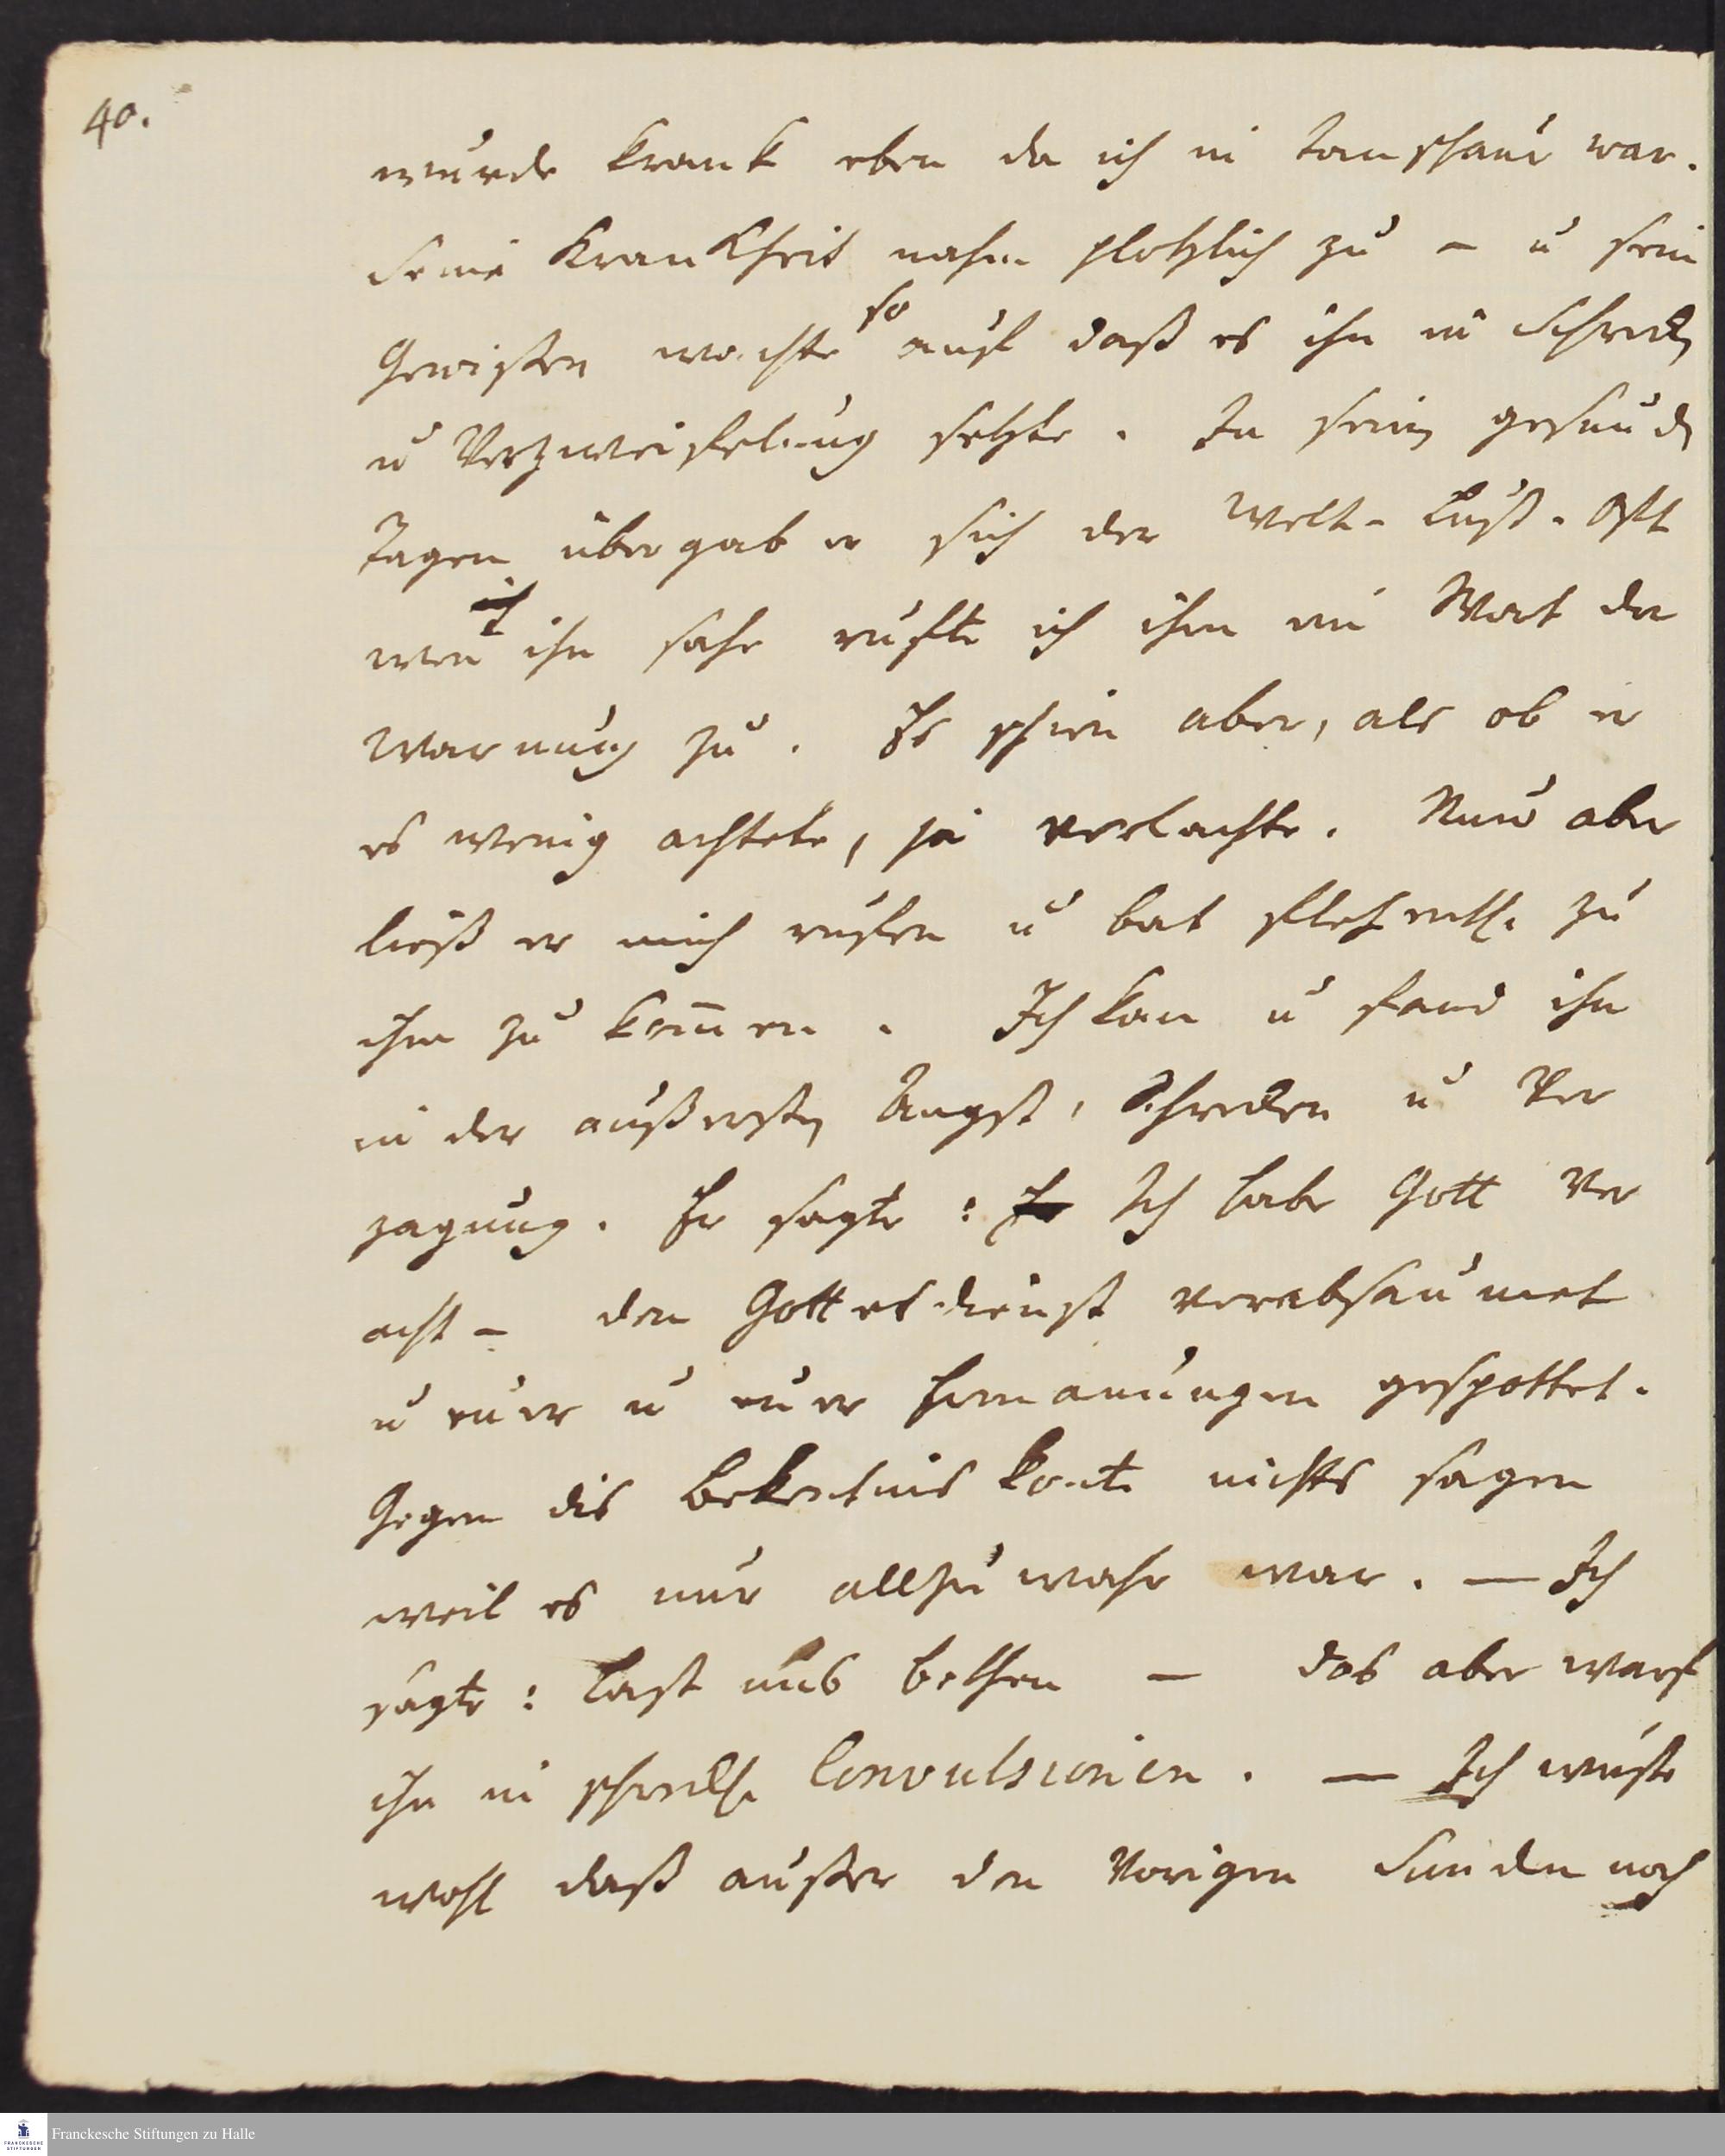 40.
wurde krank eben da ich in Tanschaur war.
Seine Krankheit nahm plotzlich zu – u sein
Gewißen wachte so auf daß es ihn in Schrecken
u Verzweifelung setzte. In seinen gesunden
Tagen übergab er sich der Welt-Lust. Oft
wen ich ihn sahe rufte ich ihm ein Wort der
Warnung zu. Es schien aber, als ob er
es wenig achtete, ja verlachte. Nun aber
ließ er mich rufen u bat flehentl. zu
ihm zu kom̄en. Ich kam u fand ihn
in der außersten Angst, Schrecken u Ver
zagung. Er sagte: Ich habe Gott ver
acht – den Gottesdienst verabsaumet
u euer u eurer Ermanungen gespottet.
Gegen dis Bekentnis konte nichts sagen
weil es nur allzu wahr war. — Ich
sagte: Last uns bethen – das aber warf
ihn in schreckl. Convulsionen. — Ich wuste
wohl daß außer den vorigen Sunden noch
Franckesche Stiftungen zu Halle